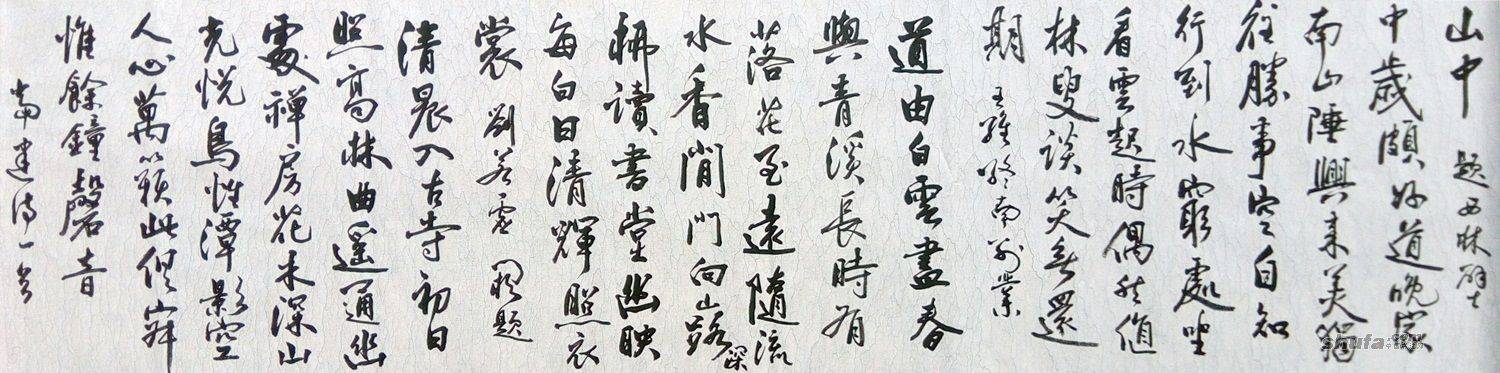 山中 题西林壁
中歲頗好道晚家
南山陲興来美獨
往勝事空自知
行到水窮處坐
看雲起時偶然值
林叟談笑無還
期 王維終南别業
道由白雲盡春
與青溪長時有
落花至遠隨流
水香閒門向山路 深
柳讀書堂幽映
每白日清輝照衣
裳 劉眘虚 闕题
清晨入古寺初日
照高林曲遥通幽
處禅房花木深山
光悦鳥性潭影空
人心萬籟此俱寂
惟餘鐘磬音
常建诗一首
shufa